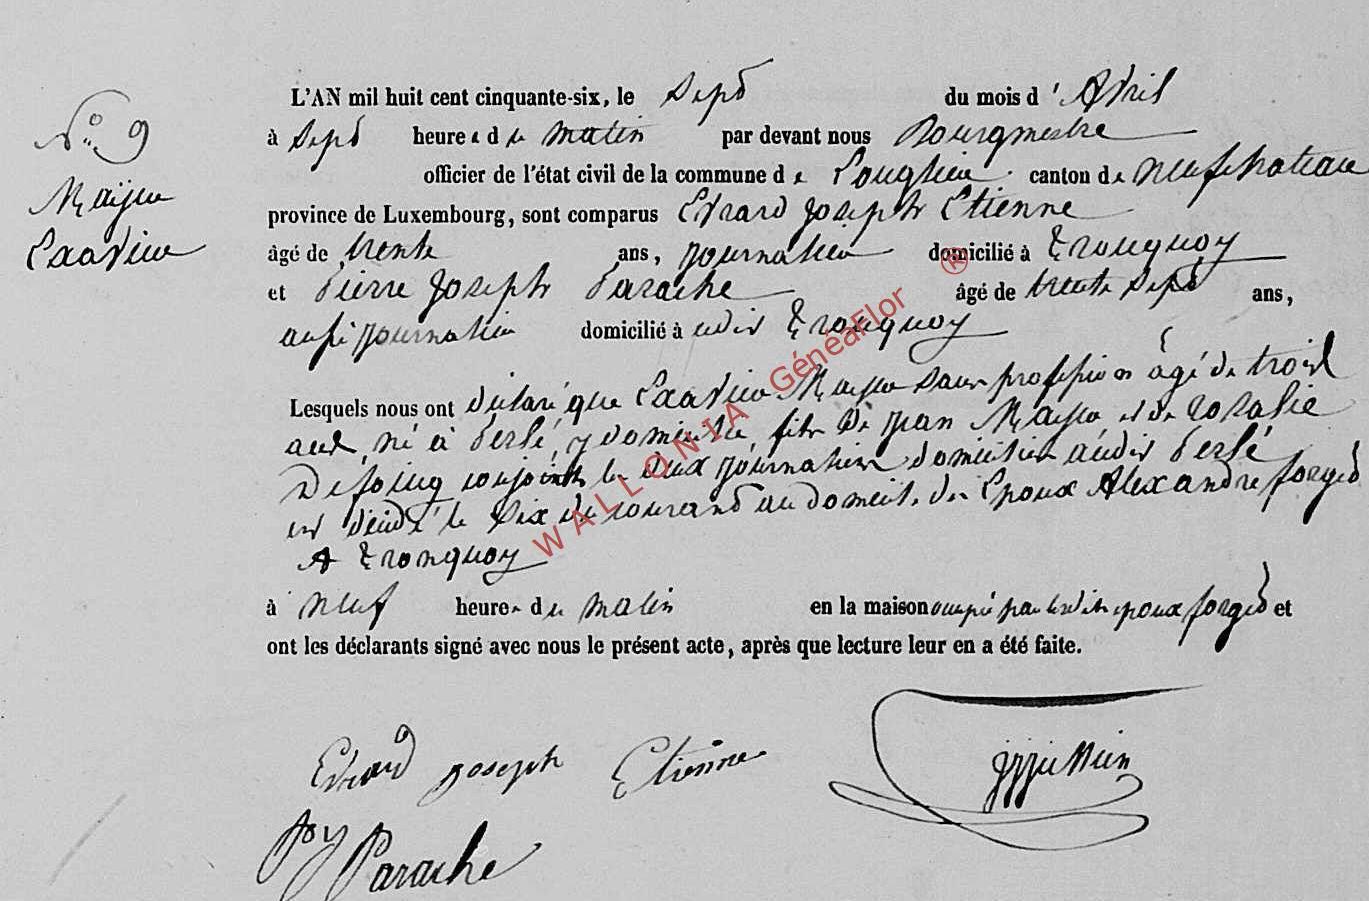 N° 9
Maijon
Exavier
L'AN mil huit cent cinquante-six, le Sept du mois d'Avril
à Sept heures du matin par devant nous Bourgmestre
officier de l'état civil de la commune de Longlier canton de neufchateau
province de Luxembourg, sont comparus Evrard Joseph Etienne
âgé de trente ans, journalier domicilié à Tronquoy
et Pierre Joseph Parache âgé de trente sept ans,
aussi journalier domicilié à udit Tronquoy
Lesquels nous ont déclaré que Exavier sans profession âgé de trois
ans né à Perlé y domicilié fils de jean et de rosalie
conjoints les deux journaliers domiciliés audit Perlé
est décédé le Six du courand au domicile des Epoux Alexandre forged
A Tronquoy
à neuf heures du matin en la maison occupée par lesdits epoux forged et
ont les déclarants signé avec nous le présent acte, après que lecture leur en a été faite.
Evrard joseph Etienne
PJ Parache
WALLONIA GénéaFlor ®